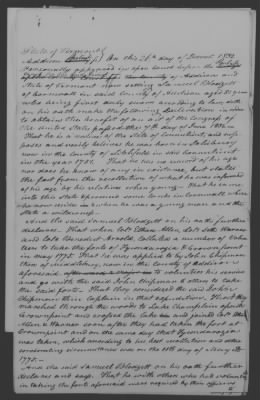 State of Vermont
Addison
On this 26th day of June 1832
Personally appeared in open court before the
of Addison and
State of Vermont now setting Samuel Blodgett
of Cornwall in said county of Addison aged 81 years
who being first duly sworn according to law, doth
on his oath make the following declaration in order
to obtain the benefit of an act of the congress of
the united States passed the 7th day of June 1832.
That he is a native of the State of Connecticut as he sup-
poses and verily believes he was born in
now in the county of in said Connecticut
in the year 1751. That he has no record of his age
nor does he know of any in existence, but states
the fact from the recollection of what he was informed
of his age by his relatives when young. That he came
into this State
who now resides in when he was a young man and the
State a wilderness.
And the said Samuel Blodgett on his oath further
declares. That when Col. Ethan Allen, Col. Seth Warner
and Col. Benedict Arnold, enlisted a number of volun-
teers to take the forts of Ticonderoga & Crown point
in May 1775. That he was applied to by John Chipman
then of Middlebury, now in the County of Addison as
aforesaid to volunteer his service
and go with the said John Chipman & others to take
the said forts. That they considered the said John
Chipman their Captain in that expedition. That they
marched through the woods to Lake Champlain opposite
Crown point and crossed the Lake and joined Col.
Allen & Warner soon after they had taken the fort at
Crown point and on the same day that Ticonderoga
was taken, which according to his best recollection and other
corroborating circumstances was on the 10th day of May AD
1775.
And the said Samuel Blodgett on his oath further
declares and says. That he with others who had volunteered
in taking the fort aforesaid were required by their officers